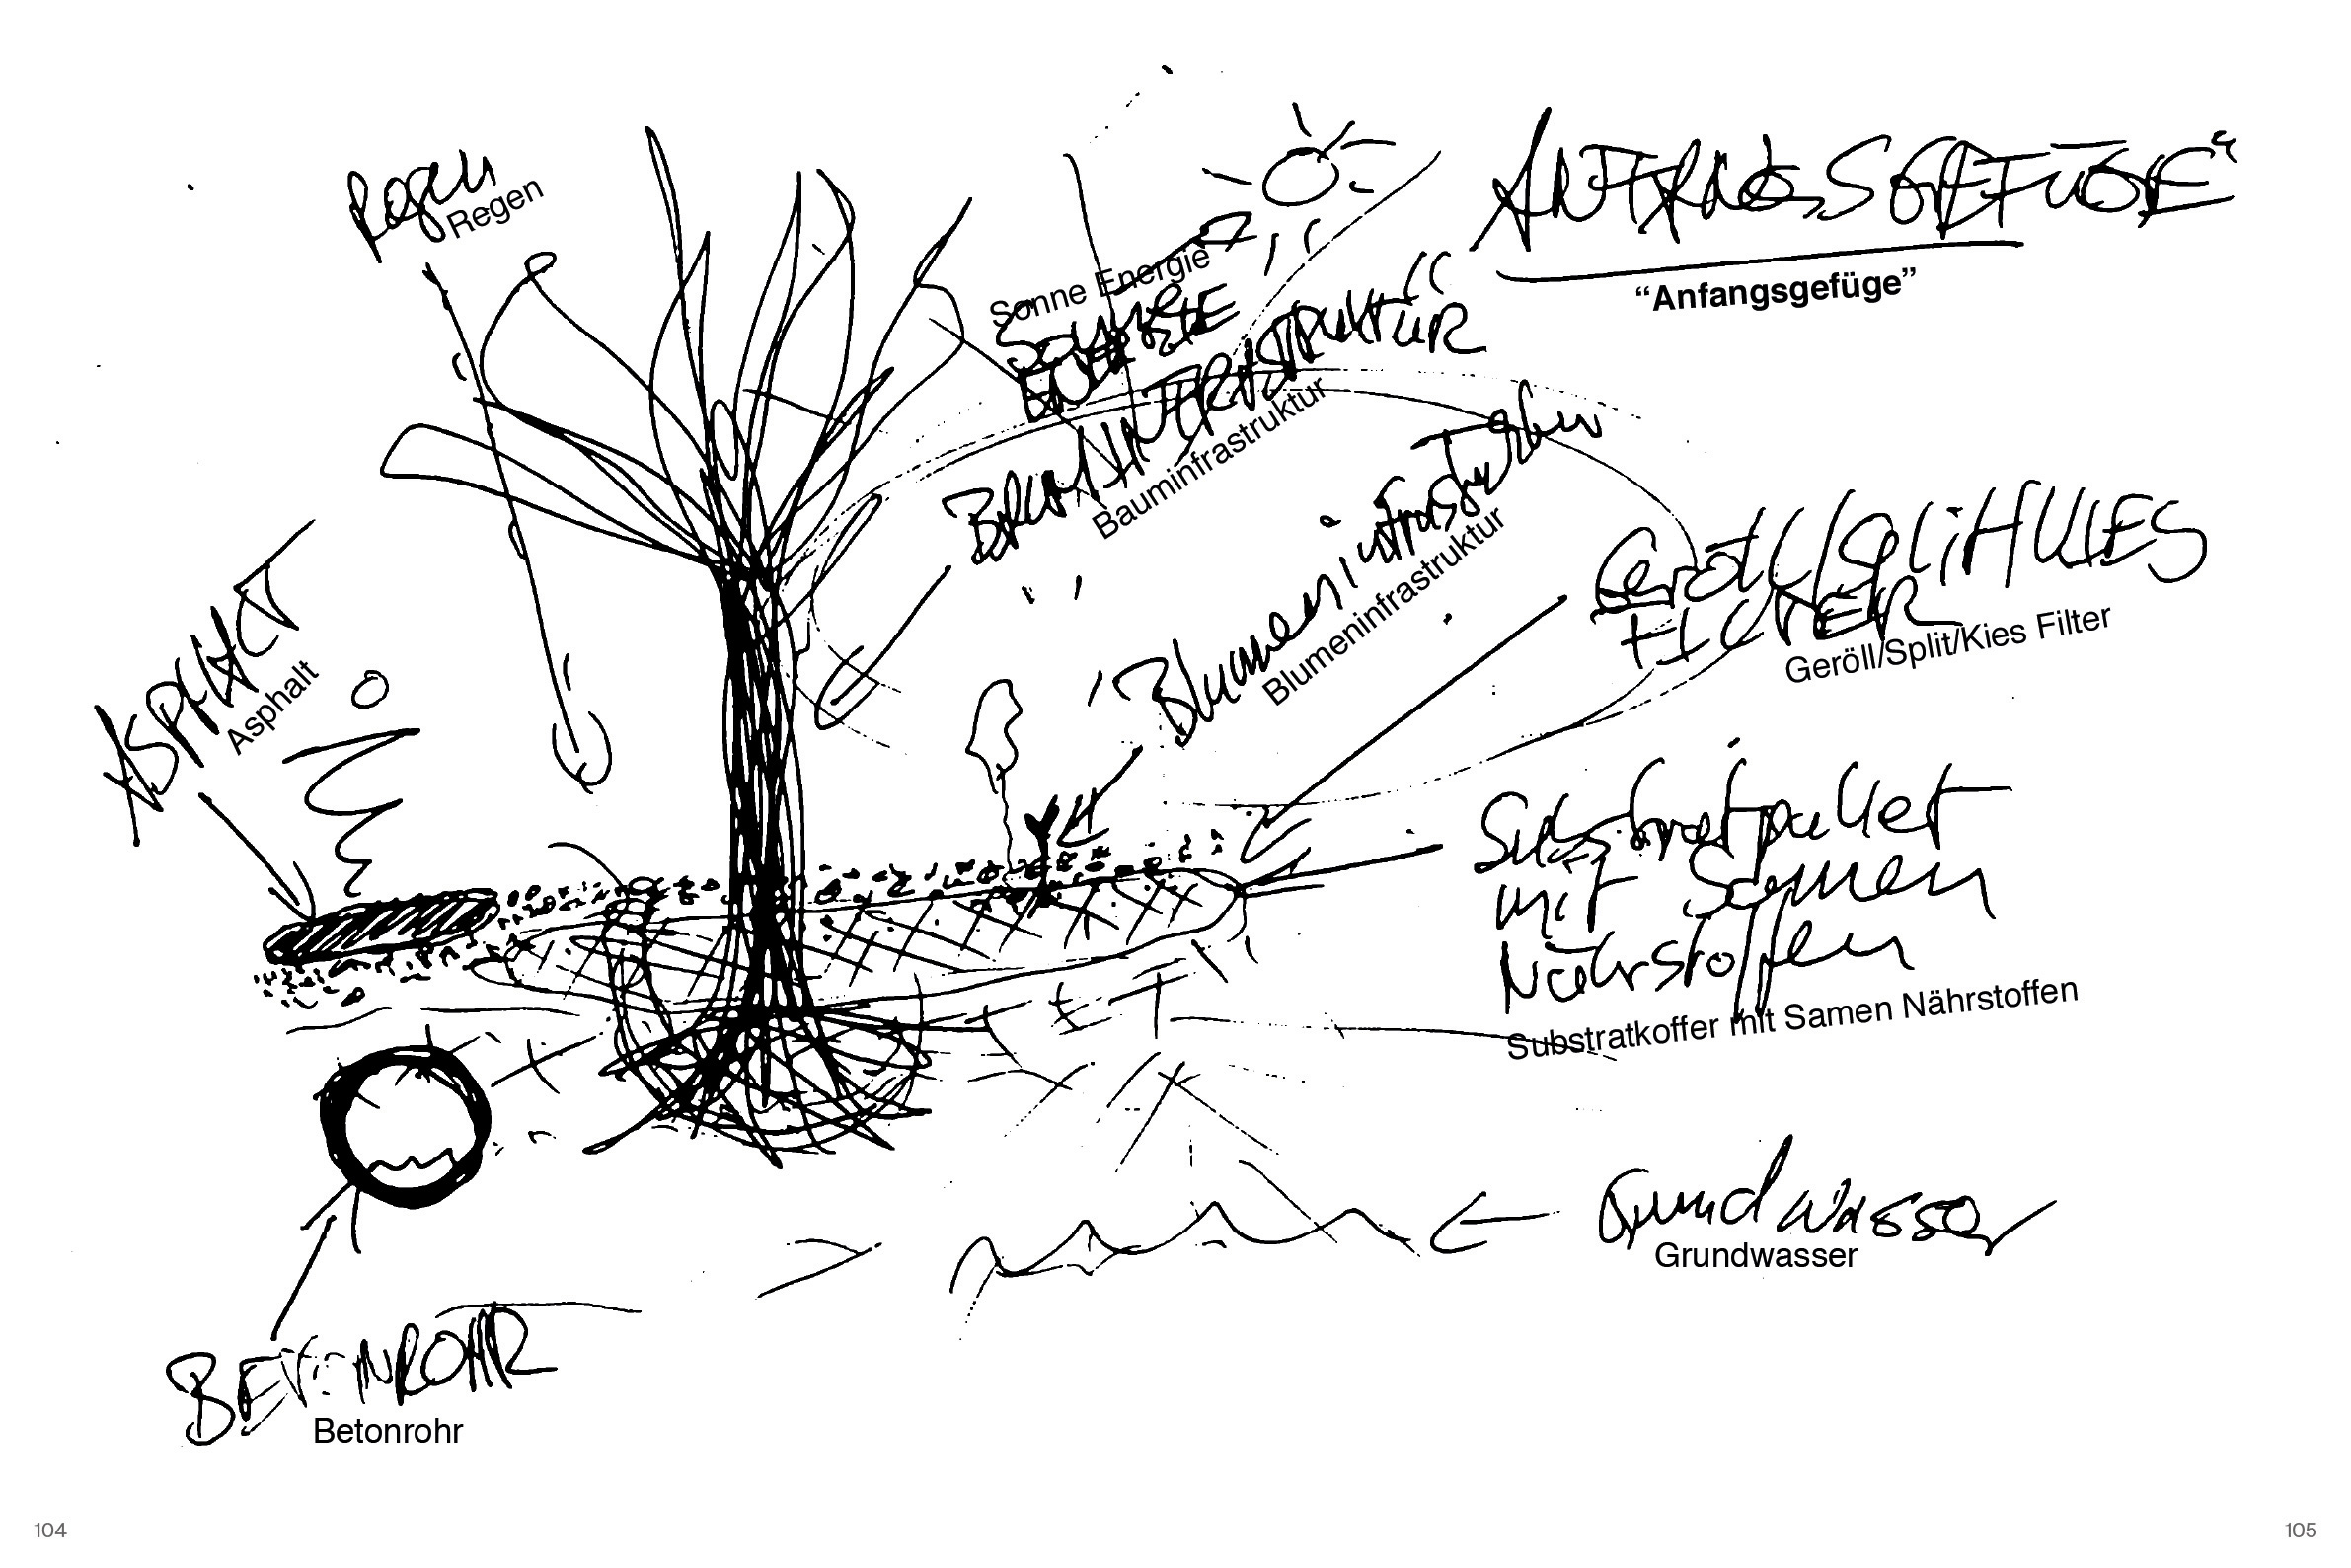 Regen
Regen
ANFANGSGEFÜGE“
“Anfangsgefüge”
Sonne Energie
SONNE
ENERGIE
BAUMINFRASTRUKTUR
Bauminfrastruktur
Blumeninfrastruktur
Blumeninfrastruktur
ASPHALT
Asphalt
Geröll/Split/KIES
FILTER
Geröll/Split/Kies Filter
mit Samen
Nährstoffen
Substratkoffer mit Samen Nährstoffen
Grundwasser
Grundwasser
BETONROHR
Betonrohr
104
105